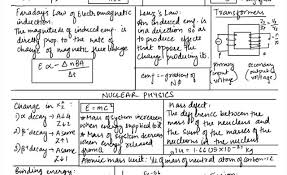 Faraday's Law of Electromagnetic
induction.
The magnitude of induced emf is
directly prop to the rate
of change of magnetic flux linkage
E α - ΔNBA
Δt
Lenz's Law:
An induced emf is
in a direction so as
to produce effects
that oppose the
change producing it.
emf = gradient of
Transformers
primary
input
voltage
secondary
output
voltage
NUCLEAR PHYSICS
Change in
1) α decay → A-4
Z-2
2) β decay → A same
Z+1
3) β+ decay → A same
Z-1
E=mc²
* Mass of system increases
when energy supplied to it
* Mass of system decreases
when energy released
from it
Mass defect:
The difference between the
mass of the nucleus and
the sum of the masses of the
nucleons in the nucleus
Atomic mass unit: 1/12 of mass of neutral atom of carbon-12
Binding energy: